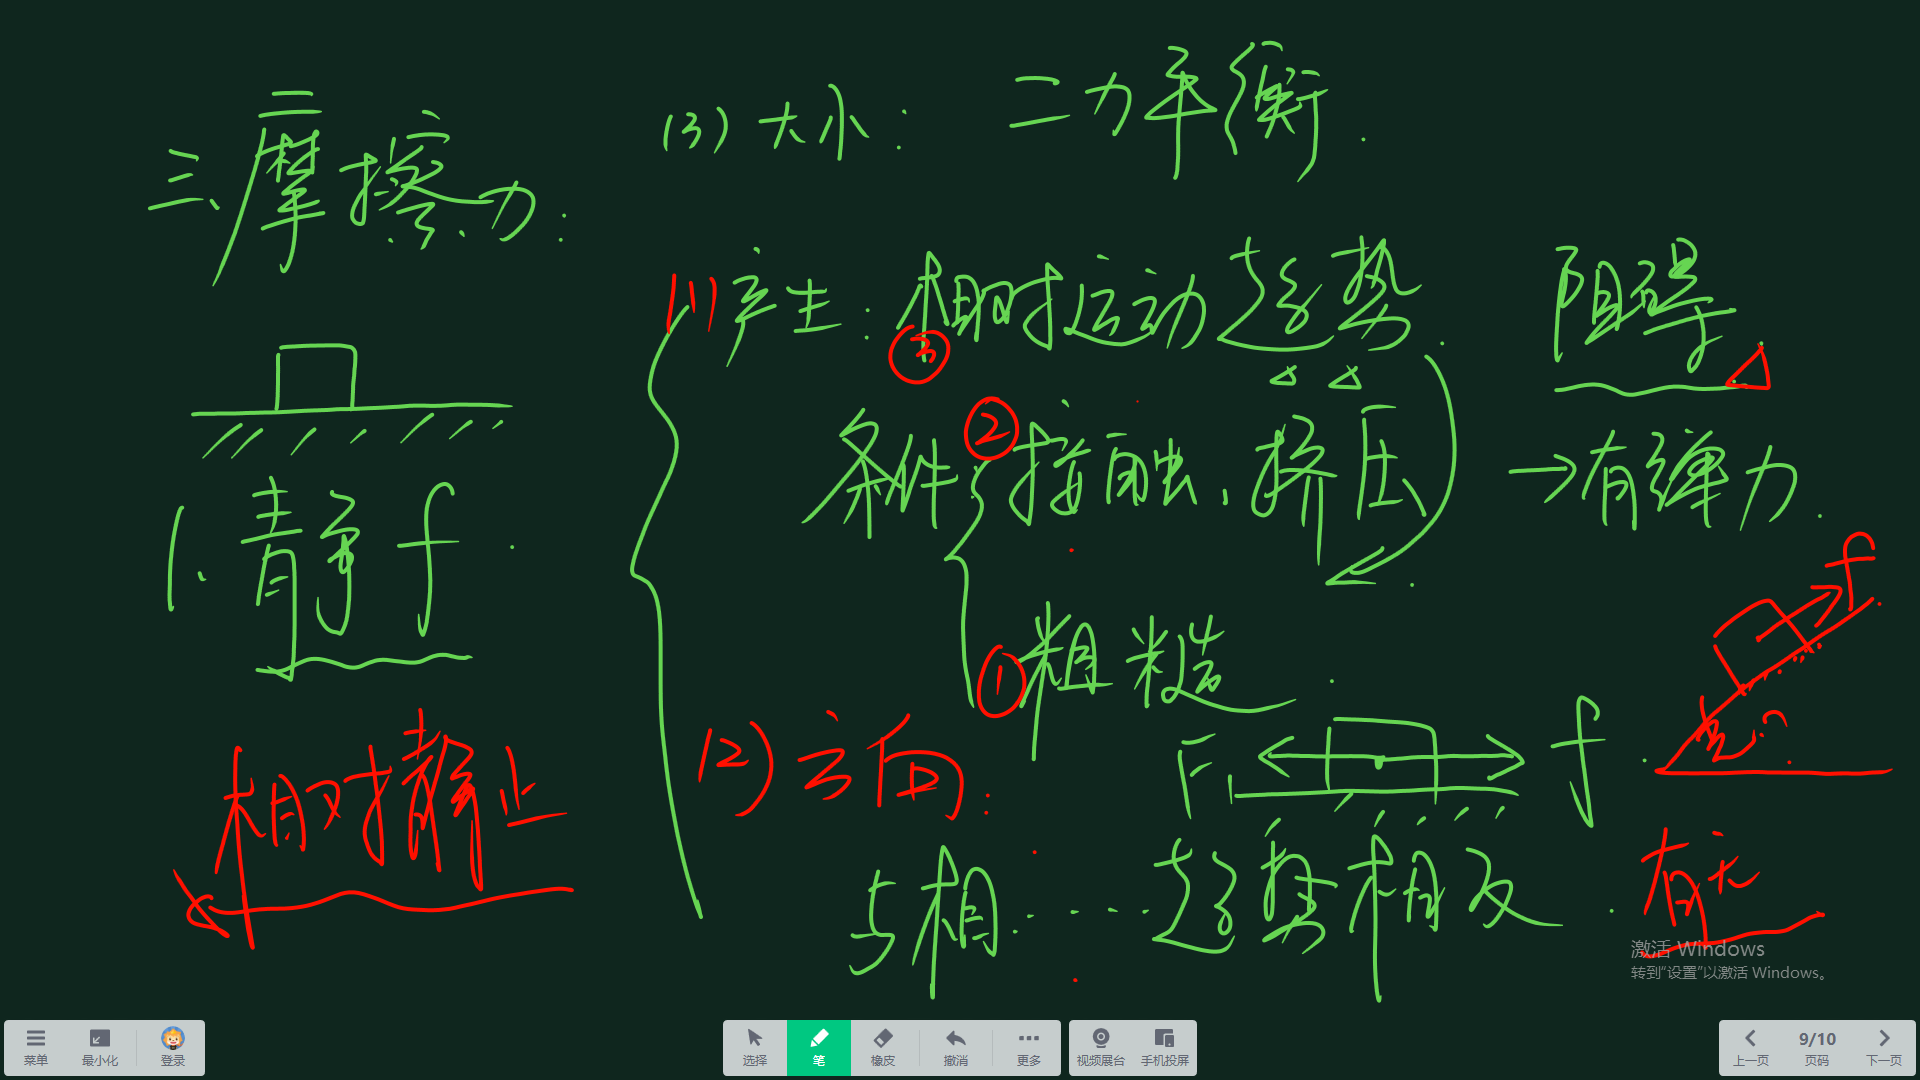 三、摩擦力:
1.静f.
相对静止
(3)大小: 二力平衡.
(1)产生: 相对运动趋势. 阻碍
③
条件 ② 接触、挤压 → 有弹力.
① 粗糙.
f
(2)方向:
F₁ f.
与相……趋势相反.
有无
激活 Windows
转到"设置"以激活 Windows。
菜单 最小化 登录
选择 笔 橡皮 撤消 更多
视频展台 手机投屏
9/10
上一页 页码 下一页